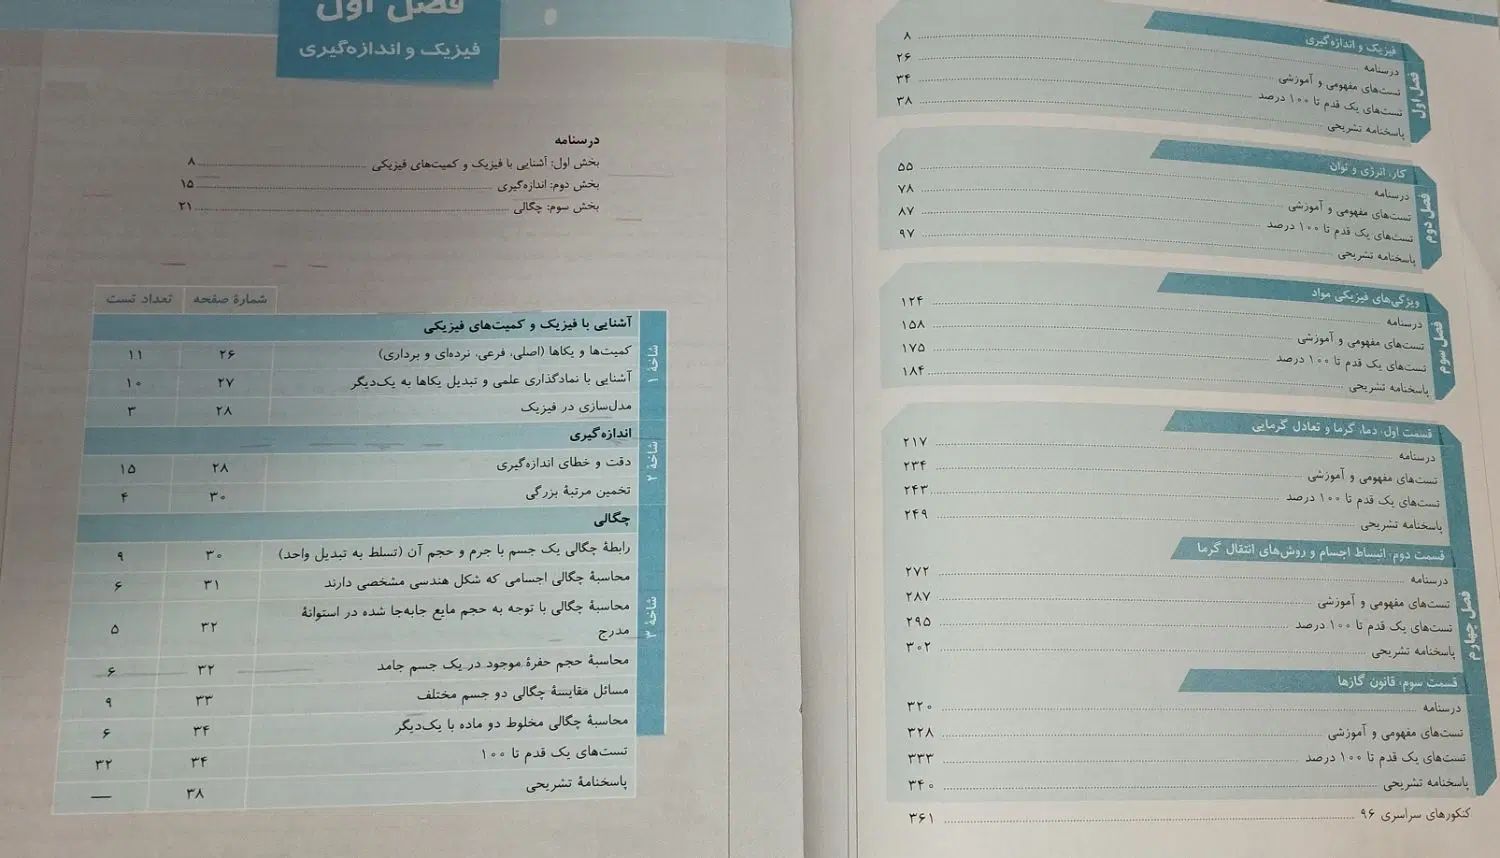 فیزیک و اندازه‌گیری
فصل اول
درسنامه ۸
تست‌های مفهومی و آموزشی ۲۶
تست‌های یک قدم تا ۱۰۰ درصد ۳۴
پاسخنامه تشریحی ۳۸
کار، انرژی و توان
فصل دوم
درسنامه ۵۵
تست‌های مفهومی و آموزشی ۷۸
تست‌های یک قدم تا ۱۰۰ درصد ۸۷
پاسخنامه تشریحی ۹۷
ویژگی‌های فیزیکی مواد
فصل سوم
درسنامه ۱۲۴
تست‌های مفهومی و آموزشی ۱۵۸
تست‌های یک قدم تا ۱۰۰ درصد ۱۷۵
پاسخنامه تشریحی ۱۸۴
فصل چهارم
قسمت اول: دما، گرما و تعادل گرمایی
درسنامه ۲۱۷
تست‌های مفهومی و آموزشی ۲۳۴
تست‌های یک قدم تا ۱۰۰ درصد ۲۴۳
پاسخنامه تشریحی ۲۴۹
قسمت دوم: انبساط اجسام و روش‌های انتقال گرما
درسنامه ۲۷۲
تست‌های مفهومی و آموزشی ۲۸۷
تست‌های یک قدم تا ۱۰۰ درصد ۲۹۵
پاسخنامه تشریحی ۳۰۲
قسمت سوم: قانون گازها
درسنامه ۳۲۰
تست‌های مفهومی و آموزشی ۳۲۸
تست‌های یک قدم تا ۱۰۰ درصد ۳۳۳
پاسخنامه تشریحی ۳۴۰
کنکورهای سراسری ۹۶ ۳۶۱
فصل اول
فیزیک و اندازه‌گیری
درسنامه
بخش اول: آشنایی با فیزیک و کمیت‌های فیزیکی ۸
بخش دوم: اندازه‌گیری ۱۵
بخش سوم: چگالی ۲۱
شمارهٔ صفحه تعداد تست
شاخهٔ ۱
آشنایی با فیزیک و کمیت‌های فیزیکی
کمیت‌ها و یکاها (اصلی، فرعی، نرده‌ای و برداری) ۲۶ ۱۱
آشنایی با نمادگذاری علمی و تبدیل یکاها به یک‌دیگر ۲۷ ۱۰
مدل‌سازی در فیزیک ۲۸ ۳
شاخهٔ ۲
اندازه‌گیری
دقت و خطای اندازه‌گیری ۲۸ ۱۵
تخمین مرتبهٔ بزرگی ۳۰ ۴
شاخهٔ ۳
چگالی
رابطهٔ چگالی یک جسم با جرم و حجم آن (تسلط به تبدیل واحد) ۳۰ ۹
محاسبهٔ چگالی اجسامی که شکل هندسی مشخصی دارند ۳۱ ۶
محاسبهٔ چگالی با توجه به حجم مایع جابه‌جا شده در استوانهٔ
مدرج ۳۲ ۵
محاسبهٔ حجم حفرهٔ موجود در یک جسم جامد ۳۲ ۶
مسائل مقایسهٔ چگالی دو جسم مختلف ۳۳ ۹
محاسبهٔ چگالی مخلوط دو ماده با یک‌دیگر ۳۴ ۶
تست‌های یک قدم تا ۱۰۰ ۳۴ ۳۲
پاسخنامهٔ تشریحی ۳۸ —